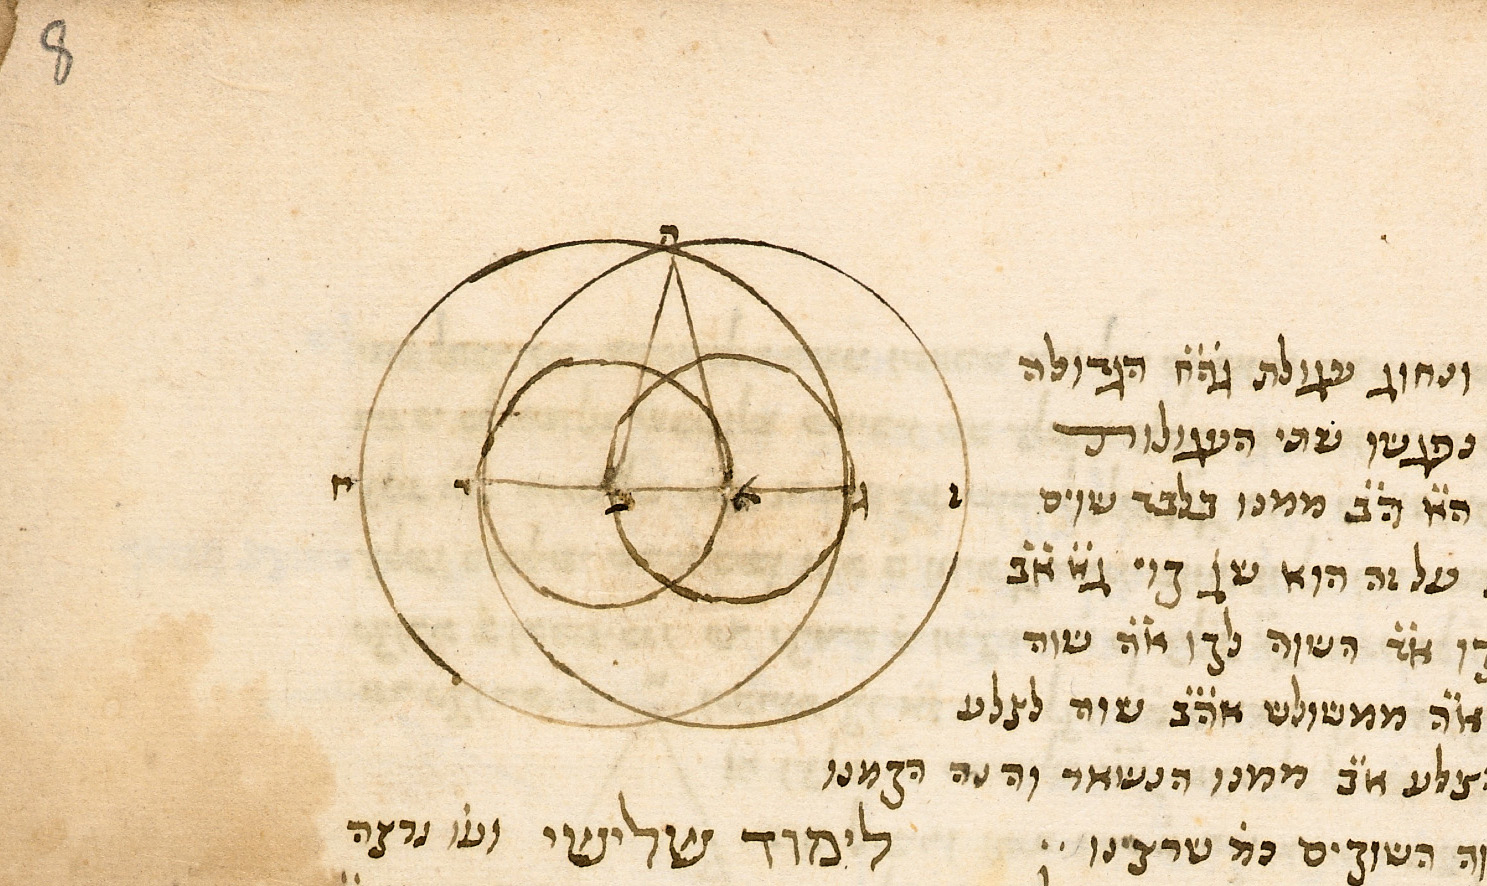 8
ה
ח ד ב א ג ז
ונחוג עגולת גה̈ח̈ הגדולה
נפגשו שתי העגולות
הא̈ ה̈ב̈ ממנו בלבד שוים
על זה הוא שקוי גא̈ א̈ב̈
א̈ד̈ השוה לקו א̈ה̈ שוה
א̈ה̈ ממשולש אה̈ב̈ שוה לצלע
לצלע א̈ב̈ ממנו הנשאר והנה הקמנו
השוקים כמ̇ שרצינו
לימוד שלישי ועו̇ נרצה